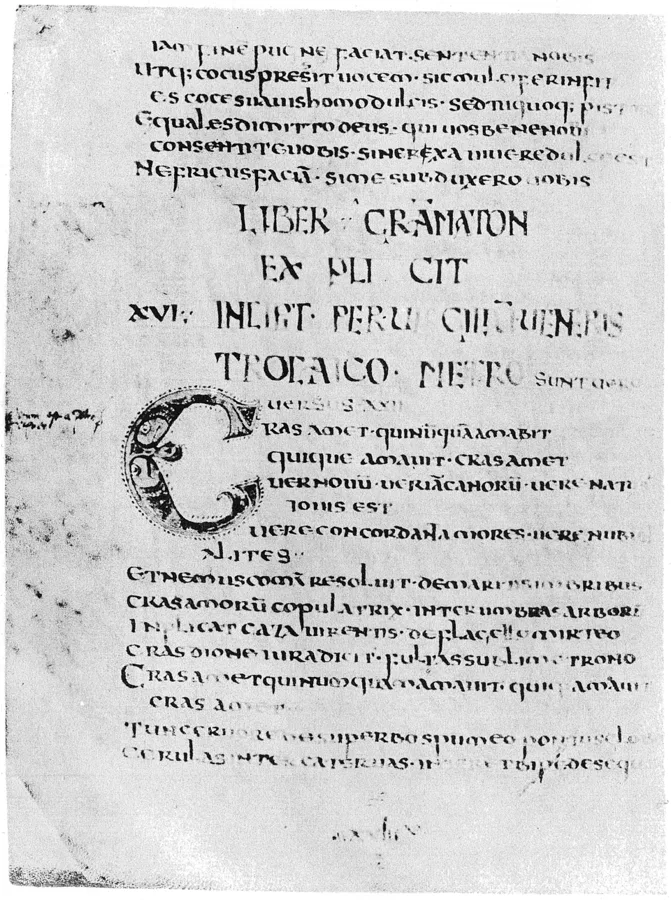 IAM FINE NE FACIAT · SENTENTIA NOBIS
UTQ; COCUS PRESSIT UOCEM · SIC MULCIFER INFIT
ES COCE SUAUIS HOMO DULCIS · SED TU QUOQ; PIST
EQUALES DIMITTO DEUS · QUI UOS BENE NOUI
CONSENTITE UOBIS · SINE REXA UIUERE DUL
NE FRICUS FACIĀ · SI ME SUBDUXERO UOBIS
LIBER GRAMMATON
EX PLI CIT
XVI · INCIPIT · PERUI GILIŪ UENERIS
TROCAICO · METRO SUNT UERO
UERSUS XXII
CRAS AMET · QUI NŪQUĀ AMABIT
QUIQUE AMAUIT · CRAS AMET
UER NOUŪ · UER IĀ CANORŪ · UERE NAT
IOUIS EST
UERE CONCORDANT AMORES · UERE NUB
ALITES
ET NEMUS COMĀ RESOLUIT · DE MARITIS IMBRIBUS
CRAS AMORŪ COPULATRIX · INTER UMBRAS ARBORE
INPLICAT CAZA UIRENTIS · DE FLAGELLO MIRTEO
CRAS DIONE IURA DICIT · FULTA SUBLIME TRONO
CRAS AMET QUI NUMQUAM AMAUIT · QUIQ; AMAUIT
CRAS AMET
TUNC CRUORE DE SUPERBO SPUMEO PONTUS
CERULAS INTER CATERUAS · INTER ET BIPEDES EQU